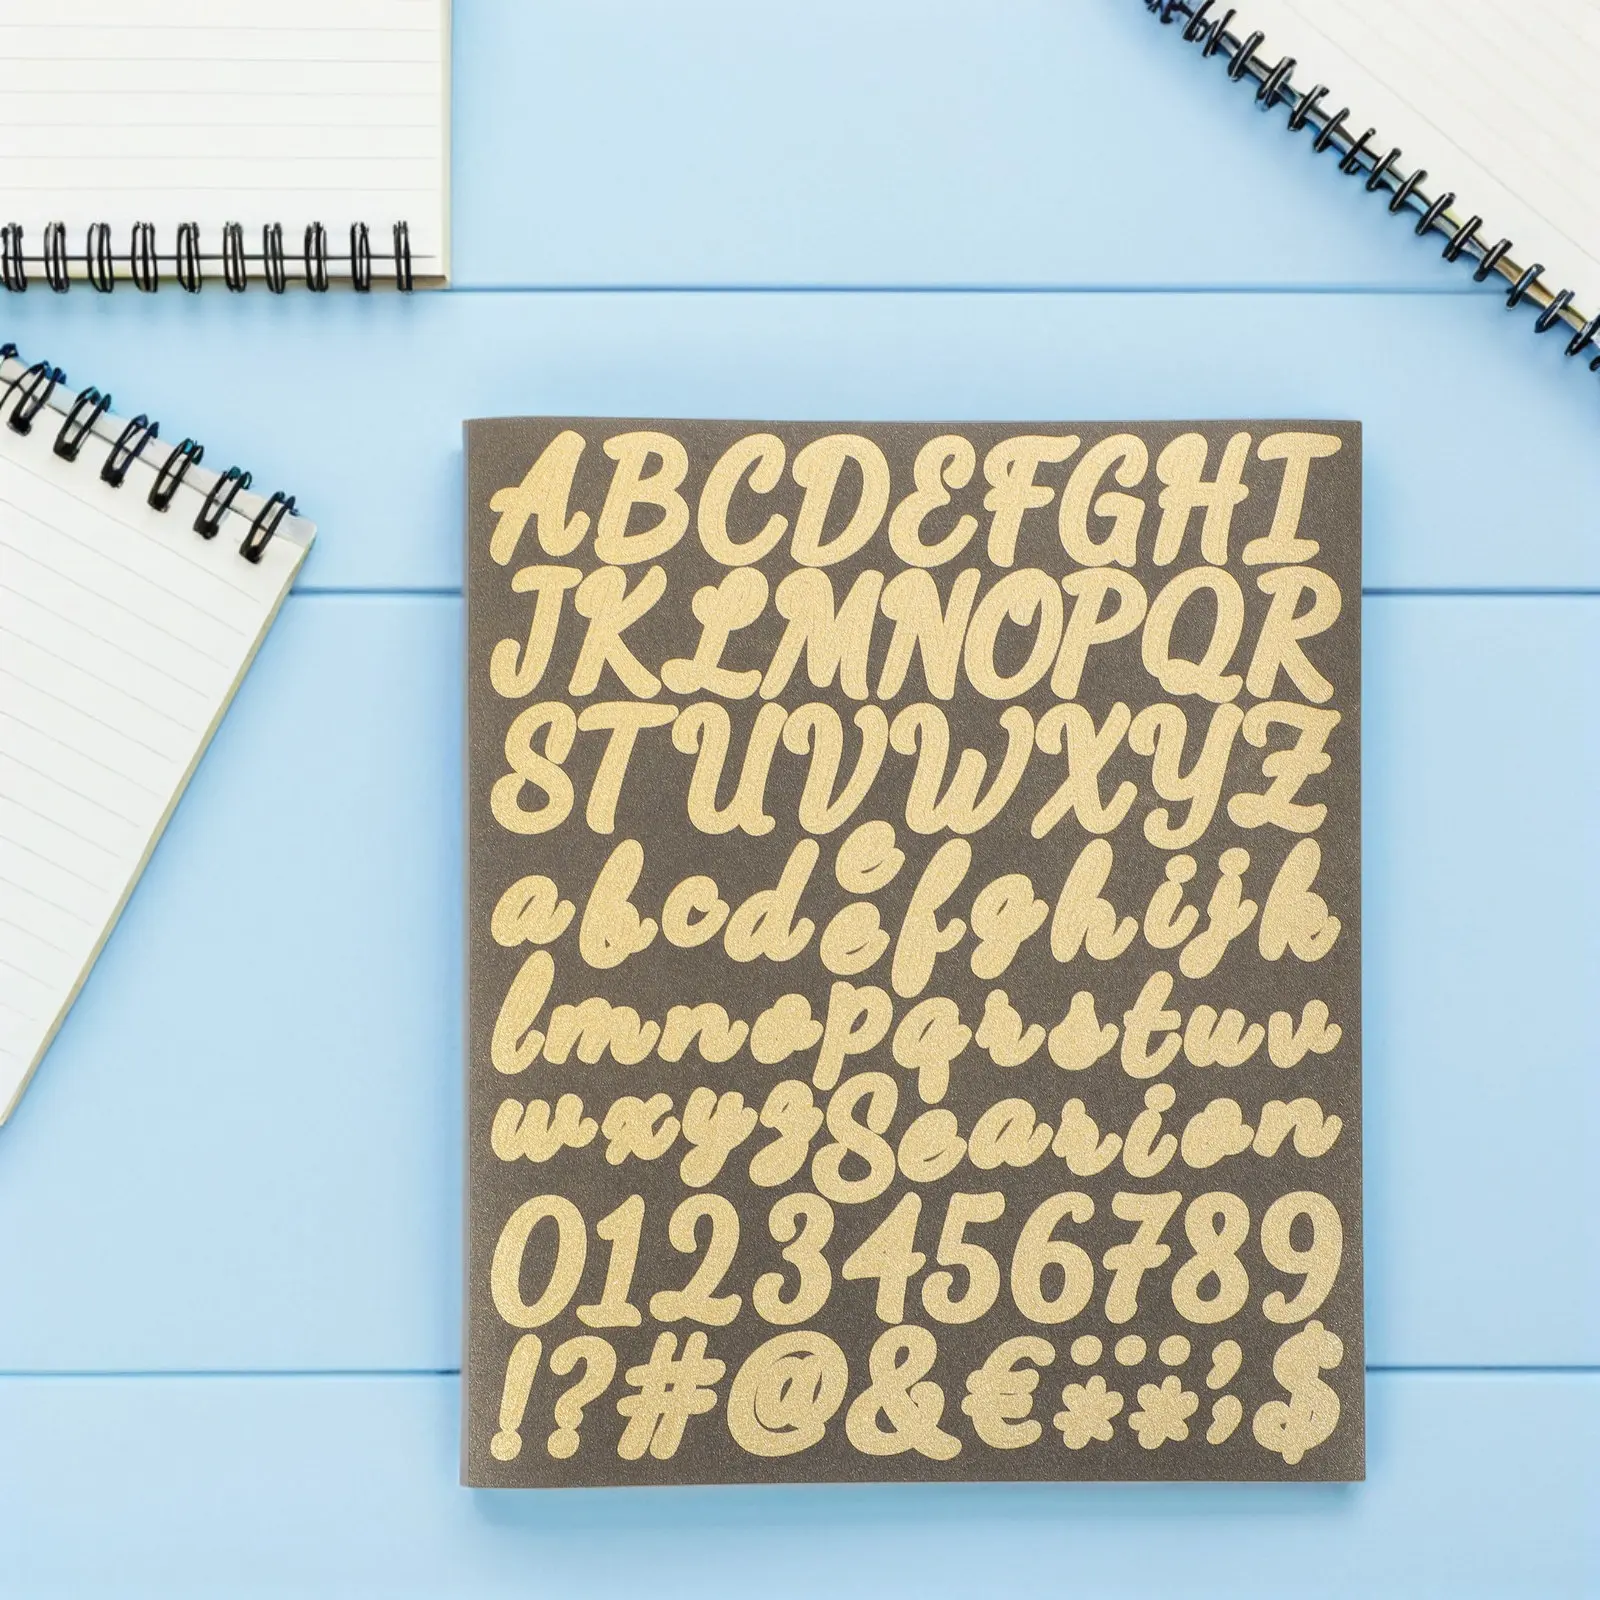 ABCDEFGHI
JKLMNOPQR
STUVWXYZ
abcdeefghijk
lmnopqrstuv
wxyzSearion
0123456789
!?#@&€..**..,'$